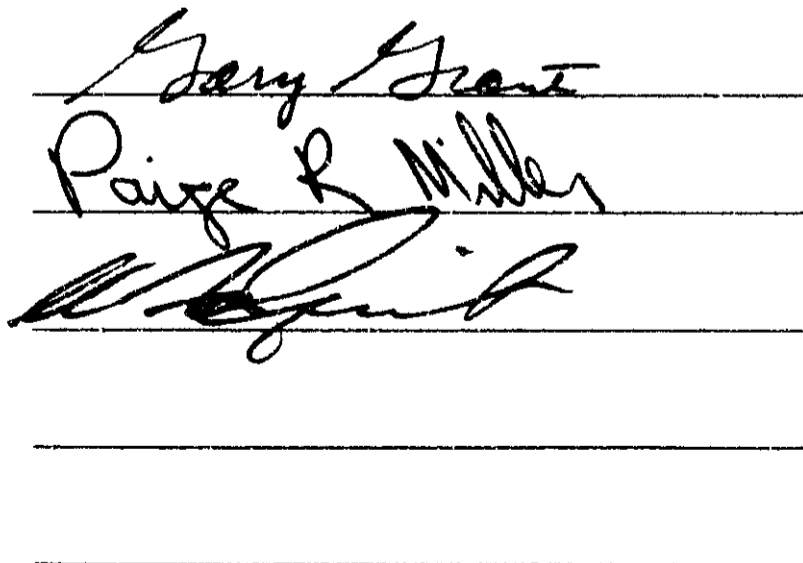 Gary Grant
Paige R Miller